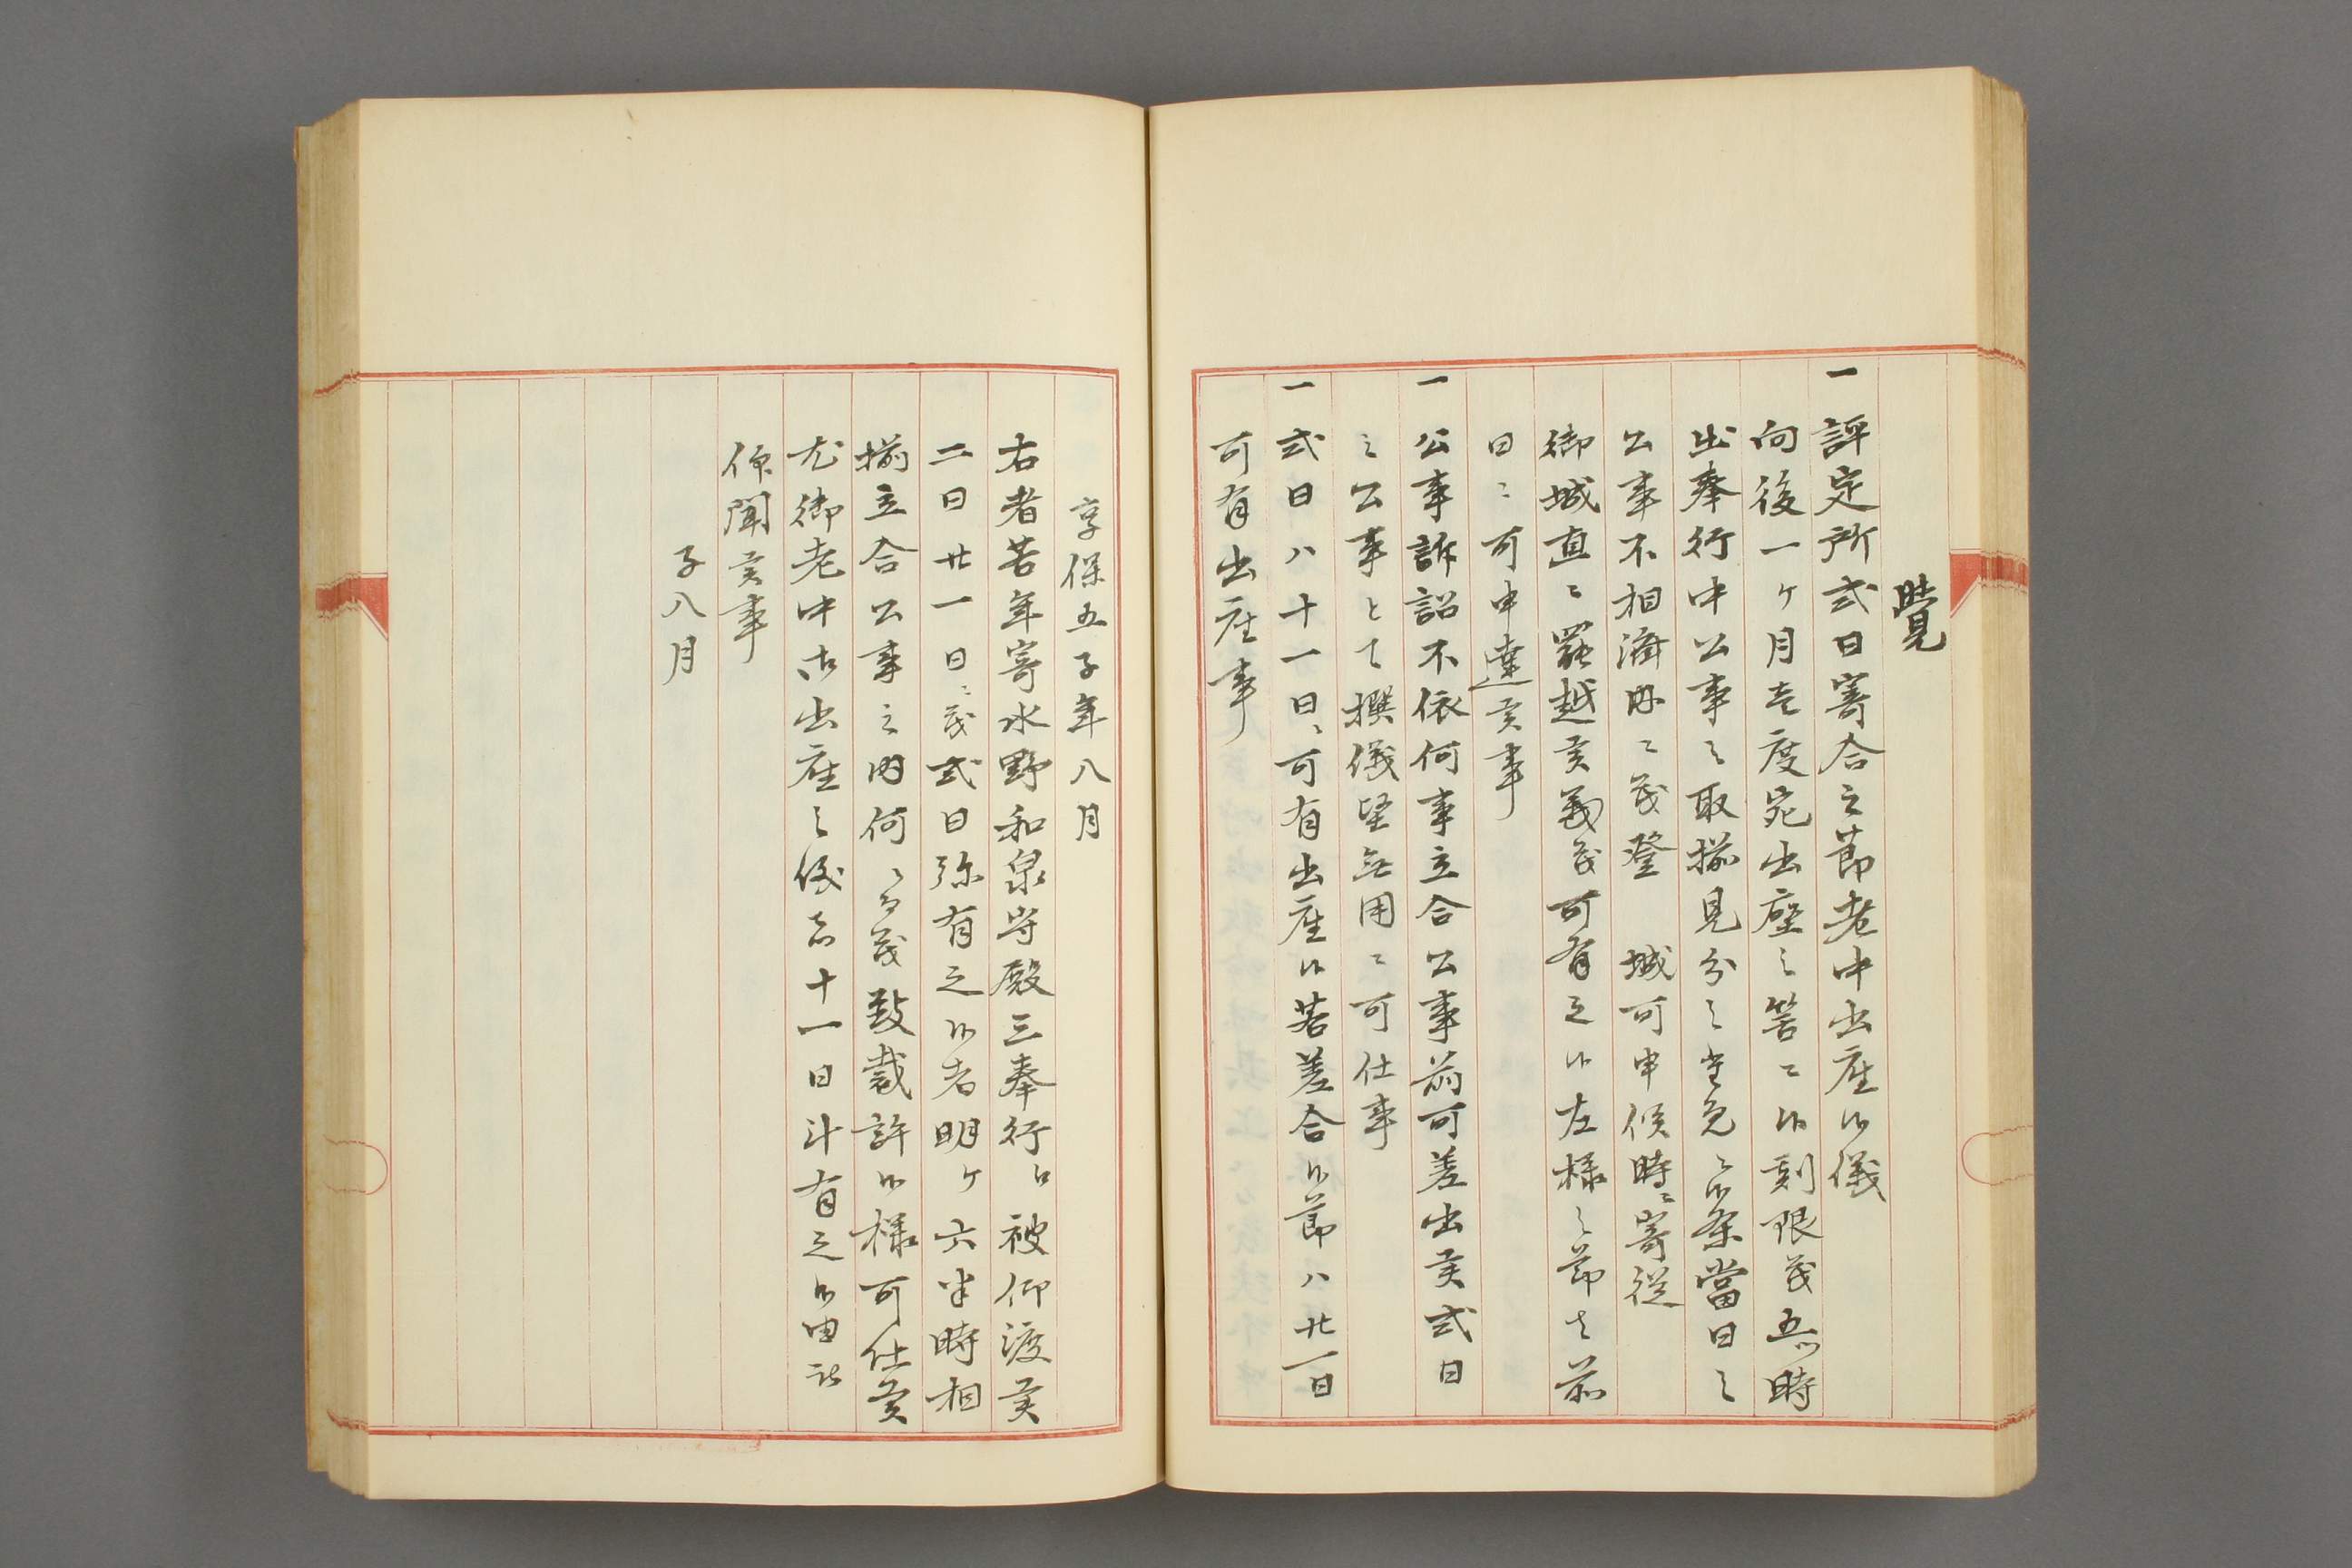 覺
一評定所式日寄合之節老中出座候儀
向後一ヶ月壱度宛出座之筈ニ候刻限茂五時
出奉行中公事之取揃見分之
公事不相濟内ニ茂登 城可申候時ニ寄従
御城直ニ罷越候義茂可有之候左様之節者前
日ニ可申達候事
一公事訴詔不依何事立合公事前可差出候式日
之公事とて撰儀堅無用ニ可仕事
一式日ハ十一日ニ可有出座候若差合候節ハ廿一日
可有出座事
享保五子年八月
右者若年寄水野和泉守殿三奉行江被仰渡候
二日廿一日ニ茂式日弥有之候者明ケ六半時相
揃立合公事之内何ニ而茂致裁許候様可仕候
尤御老中御出座之儀者十一日斗有之候由被
仰聞候事
子八月